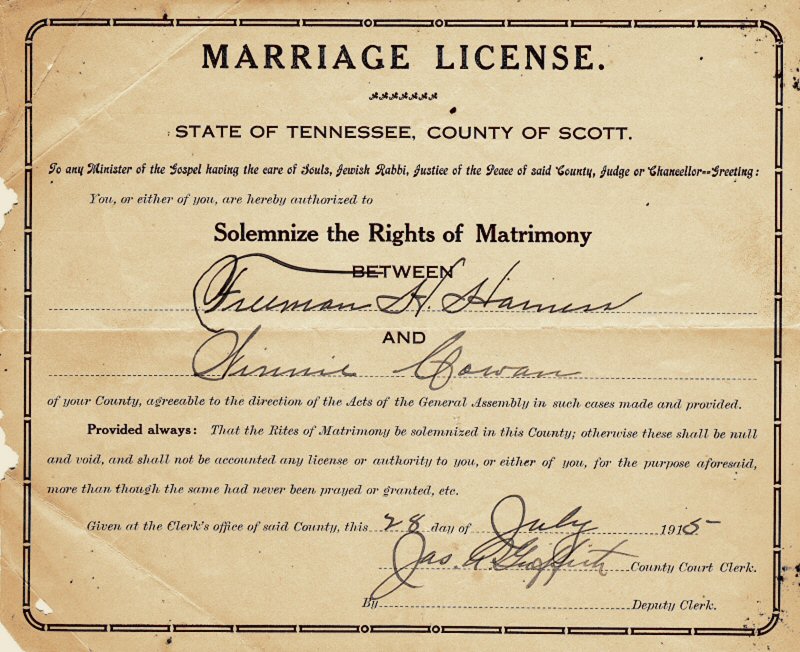 MARRIAGE LICENSE.
STATE OF TENNESSEE, COUNTY OF SCOTT.
To any Minister of the Gospel having the care of Souls, Jewish Rabbi, Justice of the Peace of said County, Judge or Chancellor==Greeting:
You, or either of you, are hereby authorized to
Solemnize the Rights of Matrimony
BETWEEN
Freeman H. Harness
AND
Cowan
of your County, agreeable to the direction of the Acts of the General Assembly in such cases made and provided.
Provided always: That the Rites of Matrimony be solemnized in this County; otherwise these shall be null
and void, and shall not be accounted any license or authority to you, or either of you, for the purpose aforesaid,
more than though the same had never been prayed or granted, etc.
Given at the Clerk's office of said County, this 28 day of July 1915
Jas. Griffith County Court Clerk.
By Deputy Clerk.